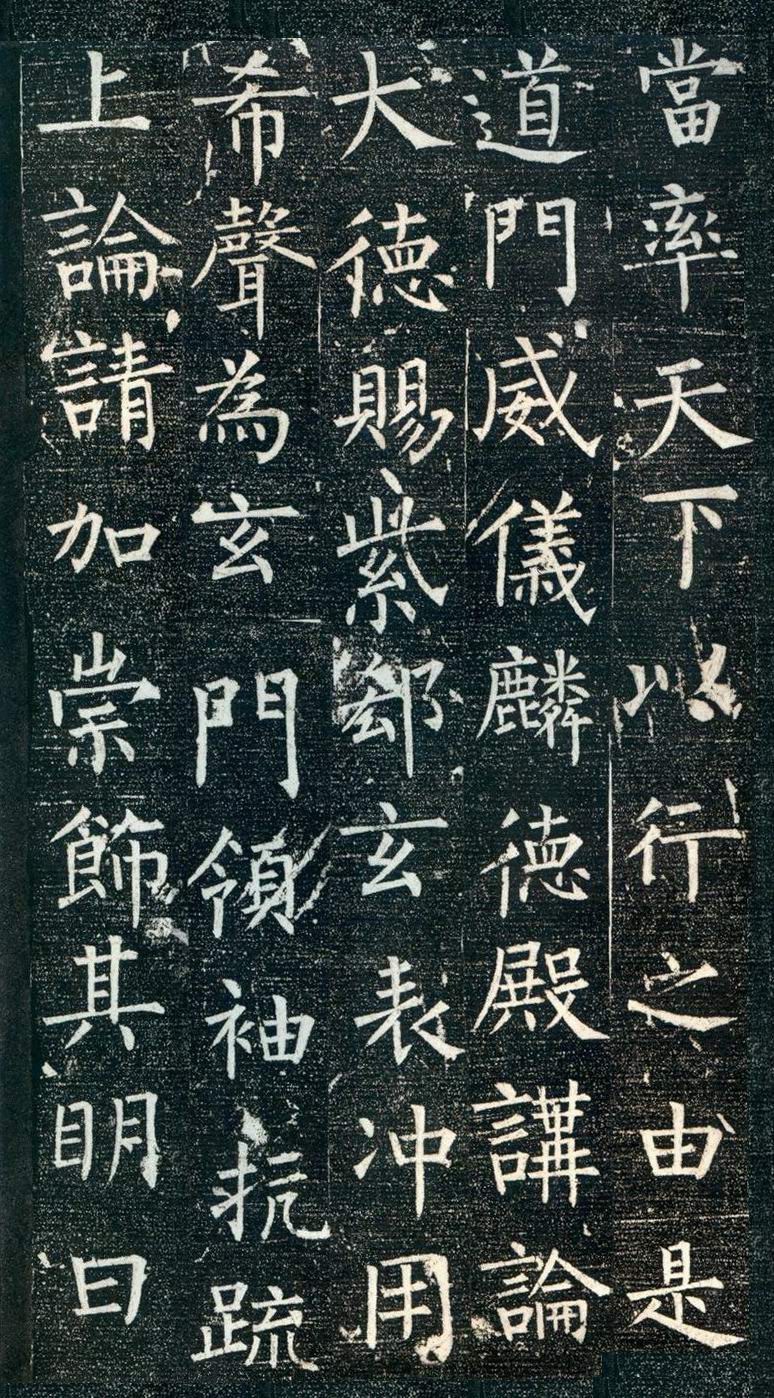 當率天下以行之由是
道門威儀麟德殿講論
大德賜紫郄玄表冲用
希聲為玄門領袖抗䟽
上論請加崇飾其明曰